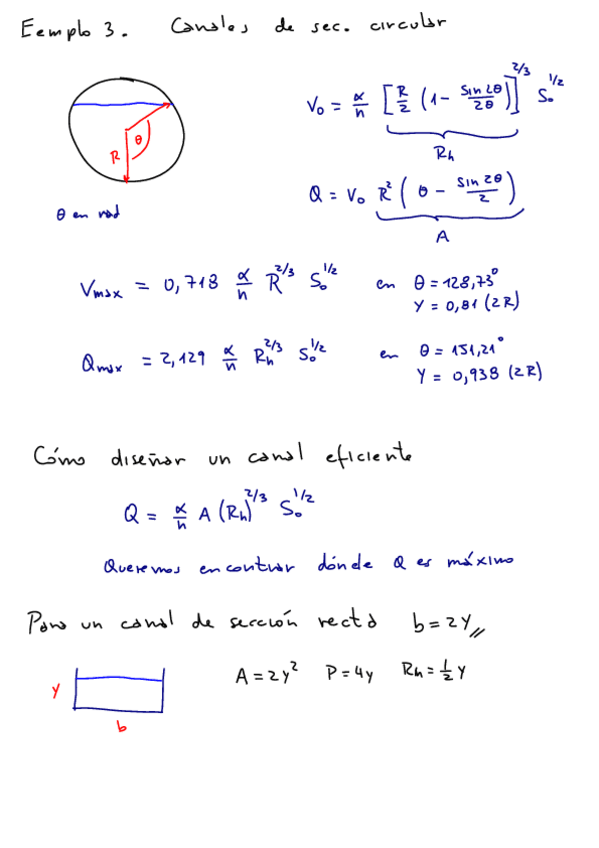 Eemplo 3. Canales de sec. circular
V₀ = α/n [R/2 (1 - Sin 2θ/2θ)]^2/3 S₀^1/2
Rh
R θ
Q = V₀ R² (θ - Sin 2θ/2)
A
θ en rad
Vmax = 0,718 α/n R^2/3 S₀^1/2 en θ = 128,73°
Y = 0,81 (2R)
Qmax = 2,129 α/n Rh^2/3 S₀^1/2 en θ = 151,21°
Y = 0,938 (2R)
Cómo diseñar un canal eficiente
Q = α/n A (Rh)^2/3 S₀^1/2
Queremos encontrar dónde Q es máximo
Para un canal de sección recta b = 2y //
A = 2y² P = 4y Rh = 1/2 y
y
b